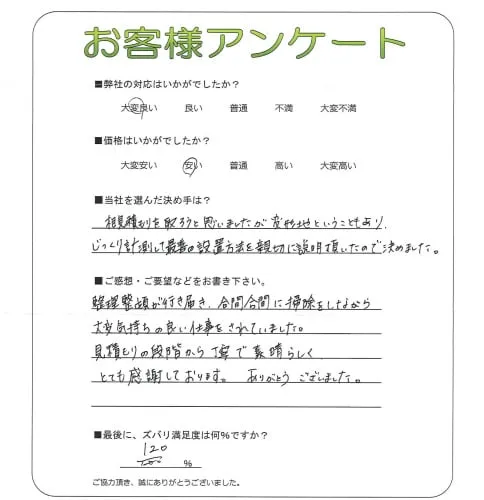 お客様アンケート
■弊社の対応はいかがでしたか？
大変良い 良い 普通 不満 大変不満
■価格はいかがでしたか？
大変安い 安い 普通 高い 大変高い
■当社を選んだ決め手は？
相見積りを取ろうと思いましたが変形地ということもあり、
じっくり計測して最善の設置方法を親切に説明頂いたので決めました。
■ご感想・ご要望などをお書き下さい。
整理整頓が行き届き、合間合間に掃除をしながら
大変気持ちの良い仕事をされていました。
見積もりの段階から丁寧で素晴らしく
とても感謝しております。 ありがとうございました。
■最後に、ズバリ満足度は何％ですか？
120
100 ％
ご協力頂き、誠にありがとうございました。